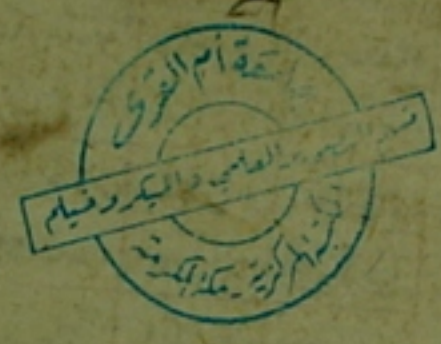 جامعة أم القرى
قسم العلمي والميكروفيلم
المكتبة المركزية - مكة المكرمة